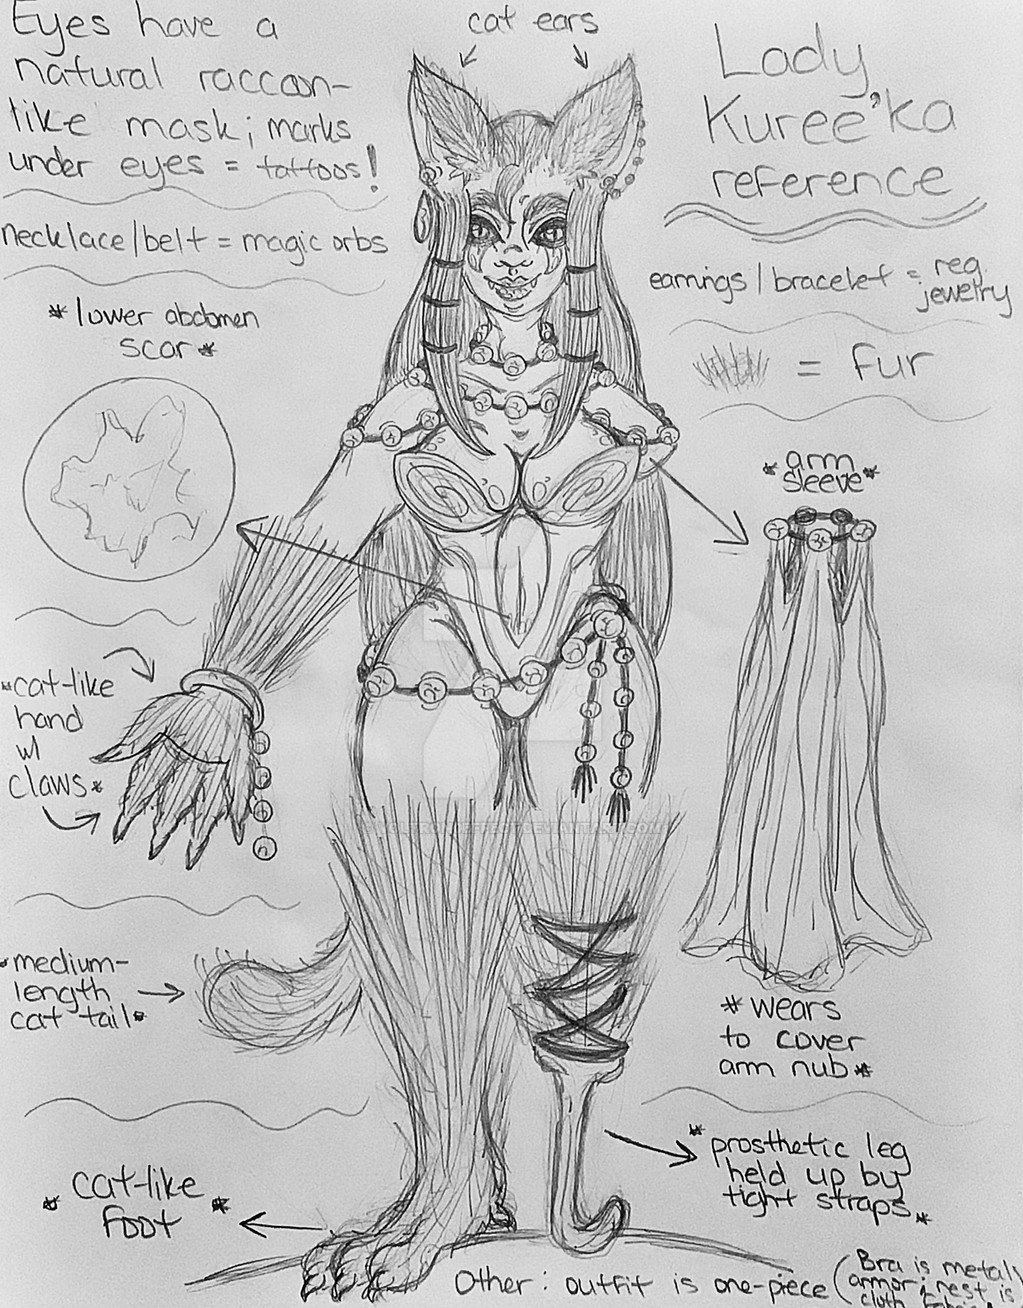 Eyes have a
natural raccoon-
like mask; marks
under eyes = tattoos!
necklace/belt = magic orbs
*lower abdomen
scar*
*cat-like
hand
w/
claws*
*medium-
length
cat tail*
*cat-like*
foot
cat ears
Lady
Kuree'ka
reference
earrings/bracelet = reg.
jewelry
= fur
*arm
sleeve*
*wears
to cover
arm nub*
*prosthetic leg
held up by
tight straps*
Other: outfit is one-piece (Bra is metal
armor; rest is
cloth